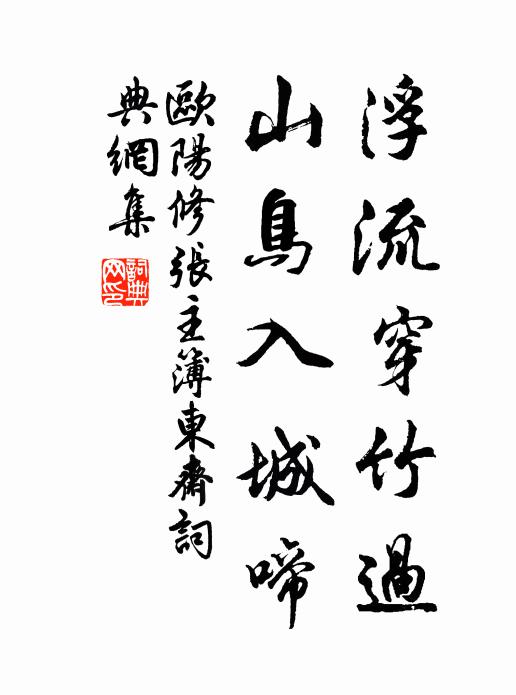 浮流穿竹過
山鳥入城啼
歐陽修張主簿東齋詞
典網集
詞典网印